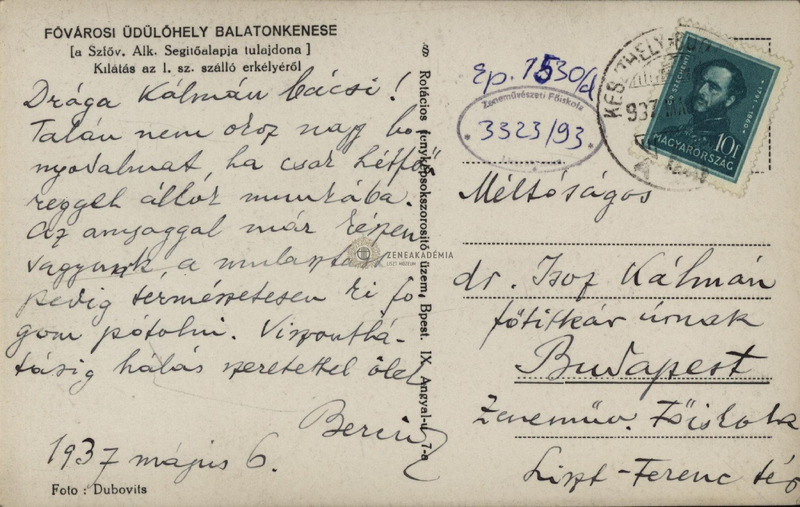 FŐVÁROSI ÜDÜLŐHELY BALATONKENESE
[a Szföv. Alk. Segitőalapja tulajdona]
Kilátás az I. sz. szálló erkélyéről
Drága Kálmán bácsi!
Talán nem okoz nagy bo-
nyodalmat, ha csak hétfő
reggel állok munkába.
Az anyaggal már készen
vagyunk, a mulasztást
pedig természetesen ki fo-
gom pótolni. Viszontlá-
tásig hálás szeretettel ölel
1937 május 6.
Foto : Dubovits
Rotációs fényképsokszorosító üzem, Bpest. IX. Angyal-u. 7-a
Ep. 1530/d
Zeneművészeti Főiskola
3323/93.
KESZTHELY-BUD
937
SZÉCHENYI
1791-1860
10f
MAGYARORSZÁG
ZENEAKADÉMIA
LISZT MÚZEUM
Méltóságos
dr. Isoz Kálmán
főtitkár úrnak
Budapest
Zeneműv. Főiskola
Liszt-Ferenc tér